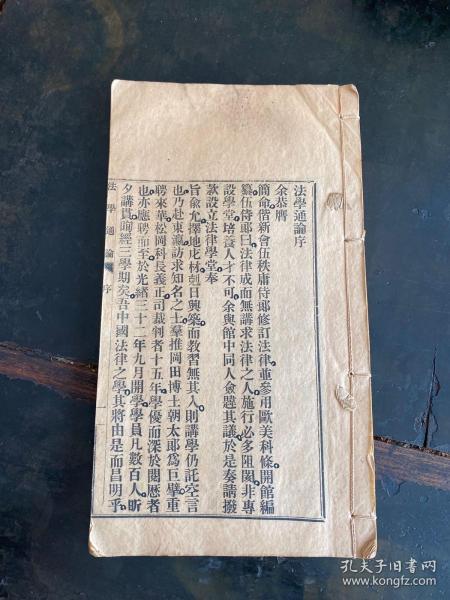 法學通論序
余恭膺
簡命偕新會伍秩庸侍郎修訂法律。重參用歐美科條。開館編
纂。伍侍郎曰。法律成而無講求法律之人。施行必多阻閡。非專
設學堂培養人才不可。余與館中同人僉韙其議。於是奏請撥
款設立法律學堂。奉
旨兪允。擇地庀材。剋日興築。而教習無其人。則講學仍託空言
也。乃赴東瀛訪求知名之士。羣推岡田博士朝太郎爲巨擘。重
聘來華。松岡科長義正司裁判者十五年。學優而深於閱歷者
也。亦應聘而至。於光緒三十二年九月開學。學員凡數百人。昕
夕講貫。閱經三學期矣。吾中國法律之學。其將由是而昌明乎。
法學通論 序
孔夫子旧书网
www.kongfz.com